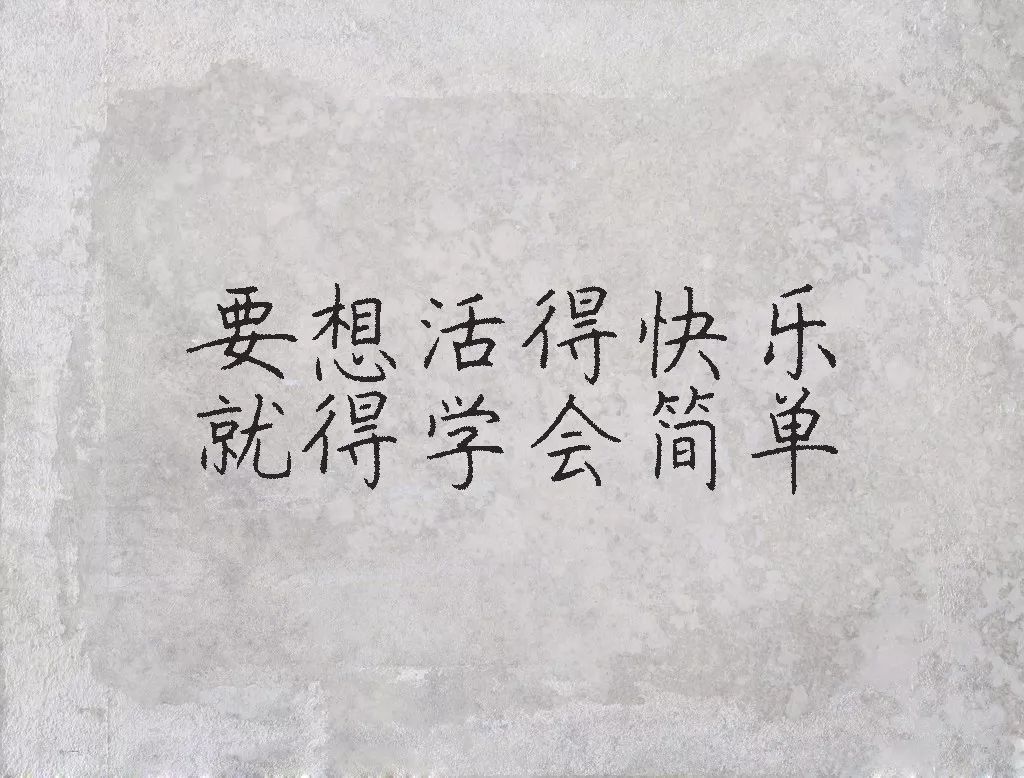 要想活得快乐
就得学会简单